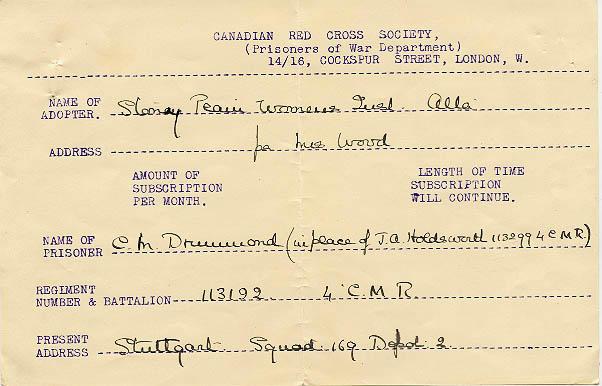 CANADIAN RED CROSS SOCIETY,
(Prisoners of War Department)
14/16, COCKSPUR STREET, LONDON, W.
NAME OF
ADOPTER. Stoney Plain Womens Inst. Alta
ADDRESS pa Mrs Wood
AMOUNT OF
SUBSCRIPTION
PER MONTH.
LENGTH OF TIME
SUBSCRIPTION
WILL CONTINUE.
NAME OF
PRISONER C. M. Drummond (in place of J.A. Holdsworth 113299 4 C.M.R.)
REGIMENT
NUMBER & BATTALION 113192 4 C M R
PRESENT
ADDRESS Stuttgart Squad 169 Depot 2